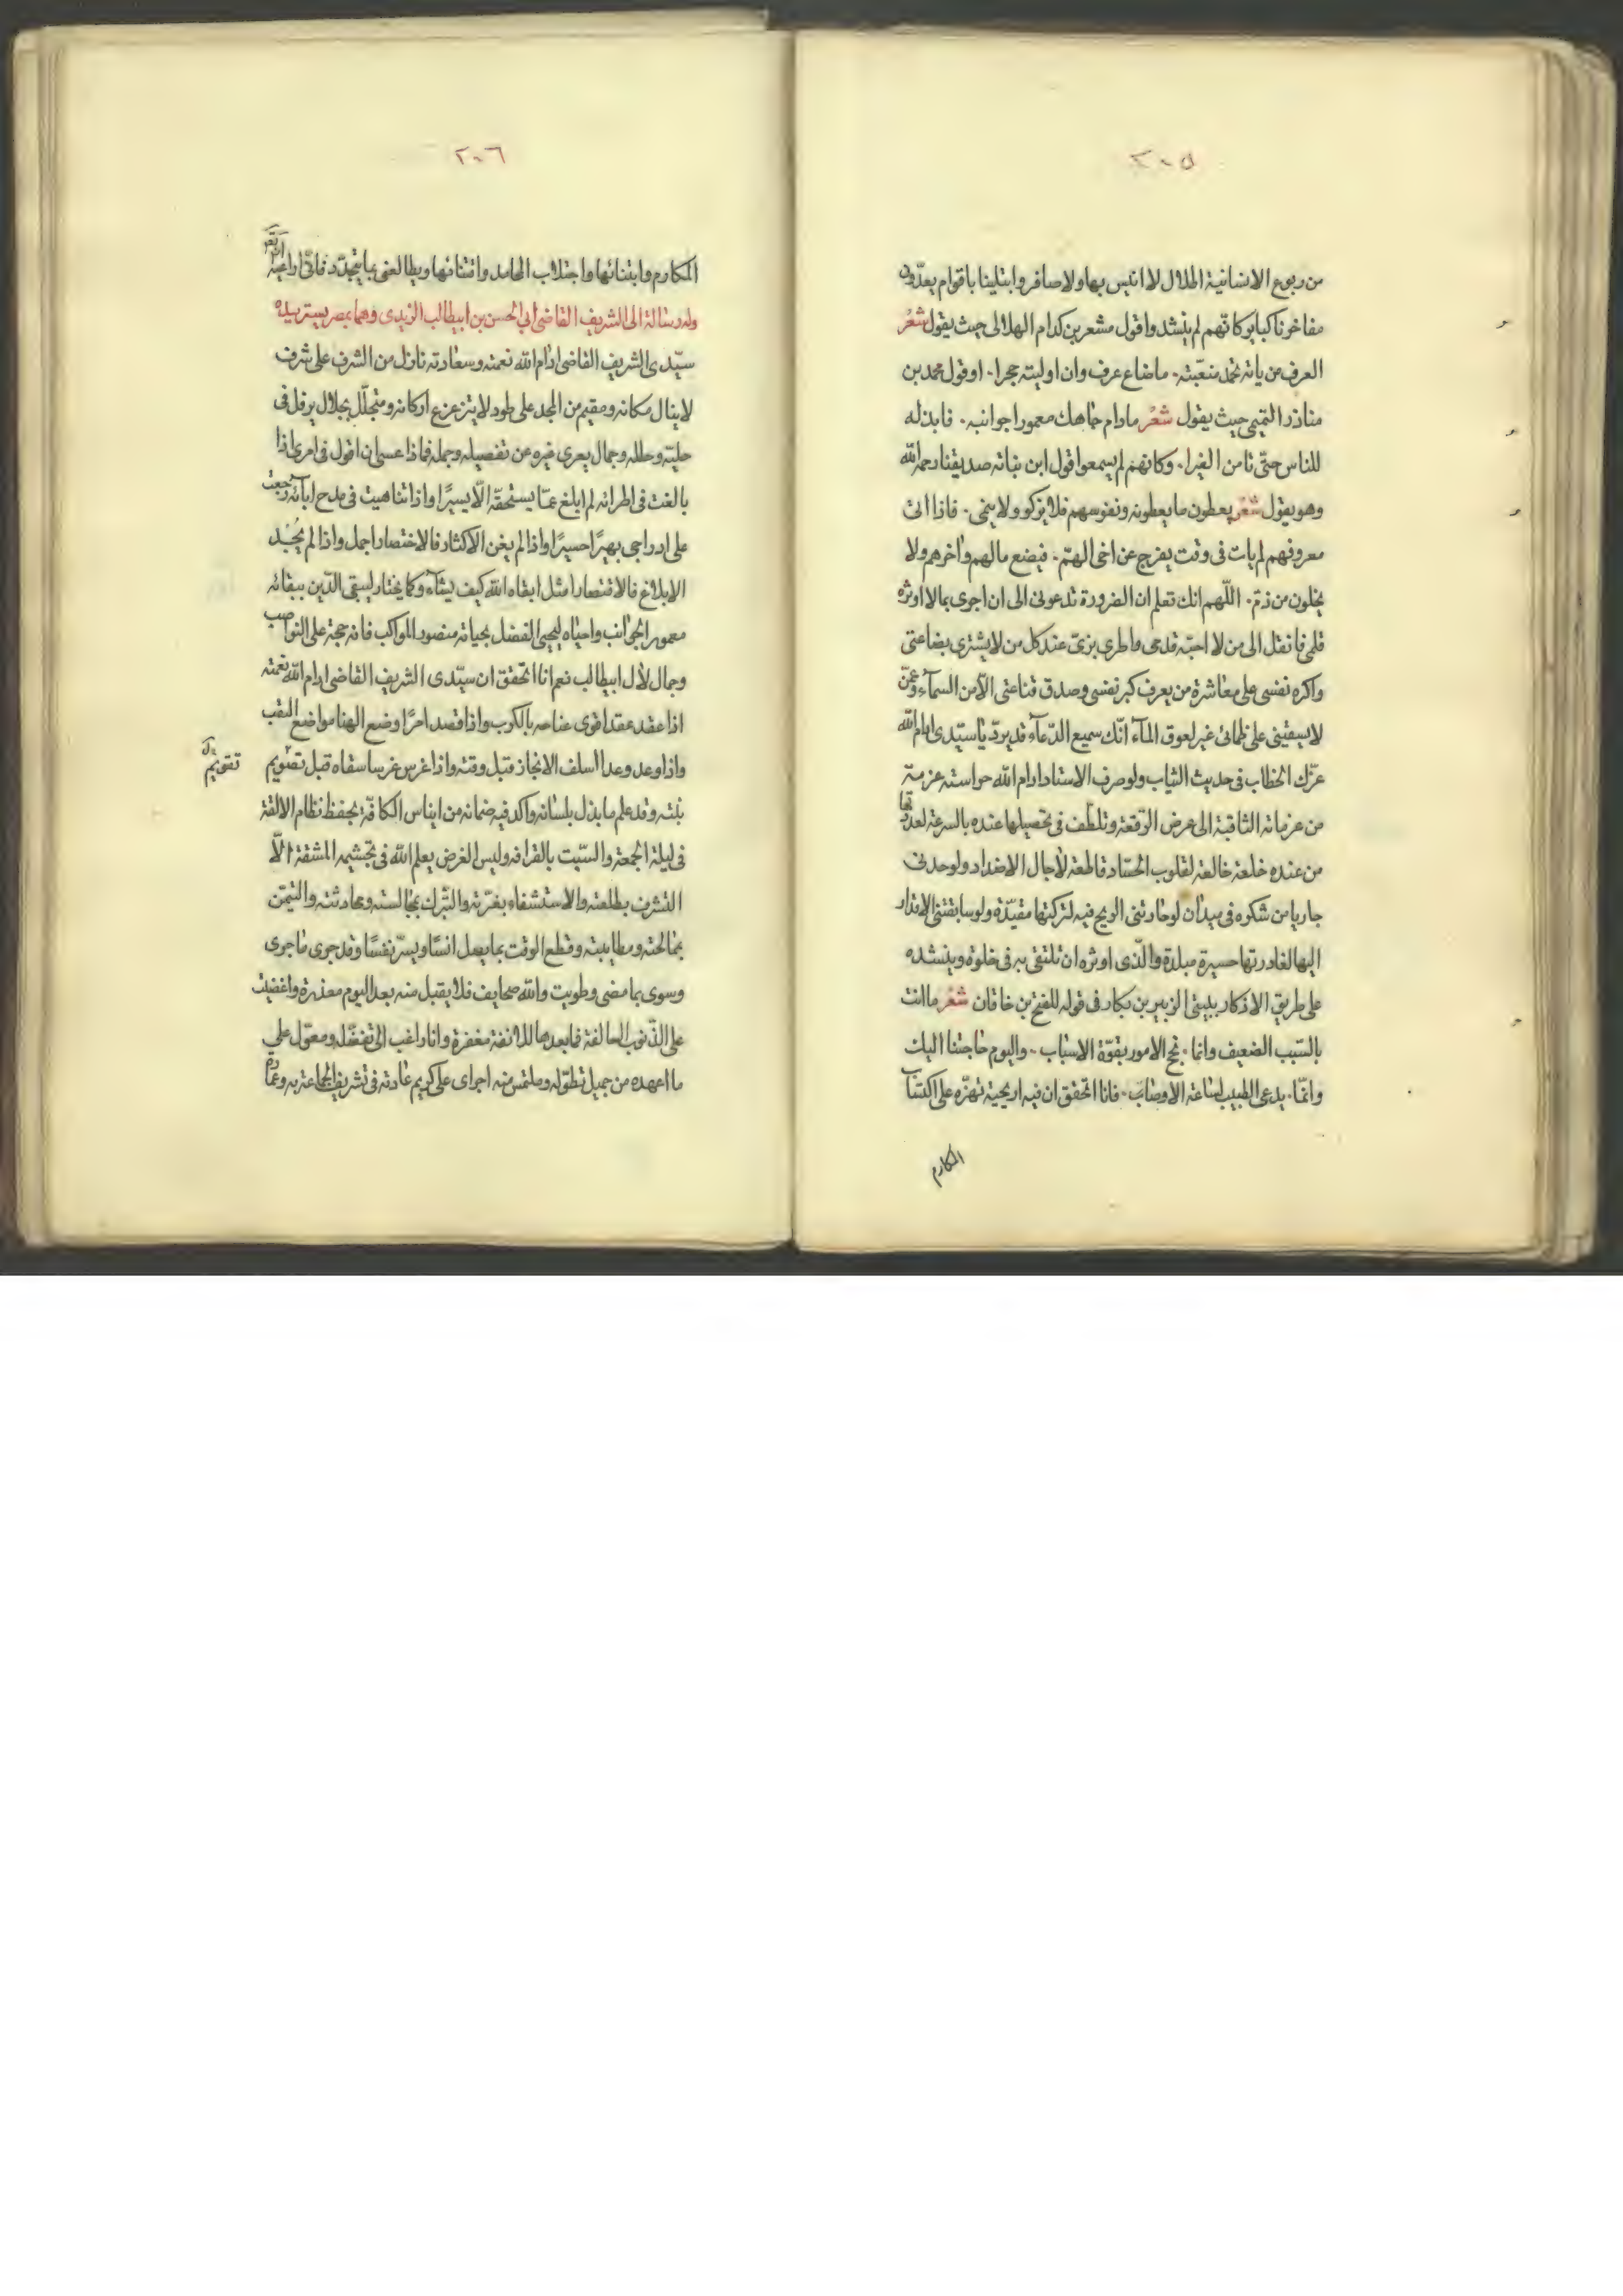 ٢٠٥
من ربوع الانسانية اطلال لا انيس بها ولا صافر وابتلينا باقوام يعدّون
مفاخرنا كبائر كانهم لم ينشد واقول مشعر بن كدام الهلالى حيث يقول شعْر
العرف من ياته تحمد مغبّته ۰ ما ضاع عرف وان اوليته حجرا ۰ او قول محمد بن
مناذر التميمى حيث يقول شعْر مادام جاهك معمورا جوانبه ۰ فابذله
للناس حتّى تامن الغيرا ۰ وكانهم لم يسمعوا قول ابن نباته صديقنا رحمه الله
وهو يقول شعْر يعطون ما يعطونه ونفوسهم فلا يزكو ولا ينمى ۰ فاذا اتى
معروفهم لم يات فى وقت يفرج عن اخى الهمّ ۰ فيضع مالهم واخرهم ولا
يخلون من ذمّ ۰ اللّهم انك تعلم ان الضرورة تدعونى الى ان اجرى بما لا اوثره
قلمى فانقل الى من لا احبّه قدمى واطرى بزىّ عند كل من لا يشترى بضاعتى
واكره نفسى على معاشرة من يعرف كبر نفسى وصدق قناعتى الّا من السمآء وعمّن
لا يسقينى على ظمائى غير لعوق المآء انّك سميع الدّعآء قد يردّ يا سيّدى ادام الله
عزّك الخطاب فى حديث الثياب ولو صرف الاستاد ادام الله حراسته عزمة
من عزماته الثاقبة الى عرض الرّقعة وتلطّف فى تحصيلها عنده بالسرعة لعددتها
من عنده خلعة خالعة لقلوب الحسّاد قاطعة لآجال الاضداد ولوجدنى
جاريا من شكره فى ميدان لوجارتنى الريح فيه لتركتها مقيّدة ولو سابقتنى الاقدار
اليها لغادرتها حسيرة مبلدة والّذى اوثره ان تلتقى به فى خلوة وينشده
على طريق الاذكار ببيتى الزبير بن بكار فى قوله للفتح بن خاقان شعْر ما انت
بالسّبب الضعيف وانما ۰ نجح الامور بقوّة الاسباب ۰ واليوم حاجتنا اليك
وانّما ۰ يدعى الطبيب لساعة الاوصاب ۰ فانا اتحقق ان فيه اريحية تهزّه على اكتساب
المكارم
٢٠٦
المكارم وابتنائها واجتلاب المحامد واقتنائها ويطالعنى بما يتجدّد فانّى اراعيه
وله رسالة الى الشريف القاضى ابى الحسن بن ابيطالب الزيدى وهما بمصر يستزيده
سيّدى الشريف القاضى ادام الله نعمته وسعادته نازل من الشرف على شرف
لا ينال مكانه ومقيم من المجد على طود لا يتزعزع اركانه ومتجلّل بجلال يرفل فى
حليته وحلله وجمال يعرى غيره عن تفصيله وجمله فماذا عسى ان اقول فى امرئ اذا
بالغت فى اطرائه لم ابلغ عمّا يستحقّه الّا يسيرًا واذا تناهيت فى مدح ابائه رجعت
على ادراجى بهيرًا حسيرًا واذا لم يغن الاكثار فالاختصار اجمل واذا لم يُجْد
الابلاغ فالاقتصار امثل ابقاه الله كيف يشآء وكما يختار ليبقى الدّين ببقائه
معمور الجوانب واحياه ليحيى الفضل بحياته منصور المواكب فانه حجة على النواصب
وجمال لآل ابيطالب نعم انا اتحقق ان سيّدى الشريف القاضى ادام الله نعمته
اذا عقد عقدا قوى عناجه بالكرب واذا قصد احزا وضع الهنا مواضع النقب
واذا وعد وعدا اسلف الانجاز قبل وقته واذا غرس غرسا سقاه قبل تصْويم
تقويم
نبته وقد علم ما بذل بلسانه واكد فيه ضمانه من ايناس الكافّة بحفظ نظام الالفة
فى ليلة الجمعة والسّبت بالقرافه وليس الغرض يعلم الله فى تجشيمه المشقة الّا
التشرف بطلعته والاستشفاء بغرّته والتبّرك بمجالسته ومحادثته والتيمّن
بممالحته ومطايبته وقطع الوقت بما يصل انسًا ويسرّ نفسًا وقد جرى ما جرى
وسوى بما مضى وطويت والله صحايف فلا يقبل منه بعد اليوم معذرة واغضيت
على الذّنوب السالفة فما بعدها للانفة مغفرة وانا راغب الى تفضّله ومعوّل على
ما اعهده من جميل تطوّله وملتمس منه اجراى على كريم عادته فى تشريف الجماعة به وعمارة